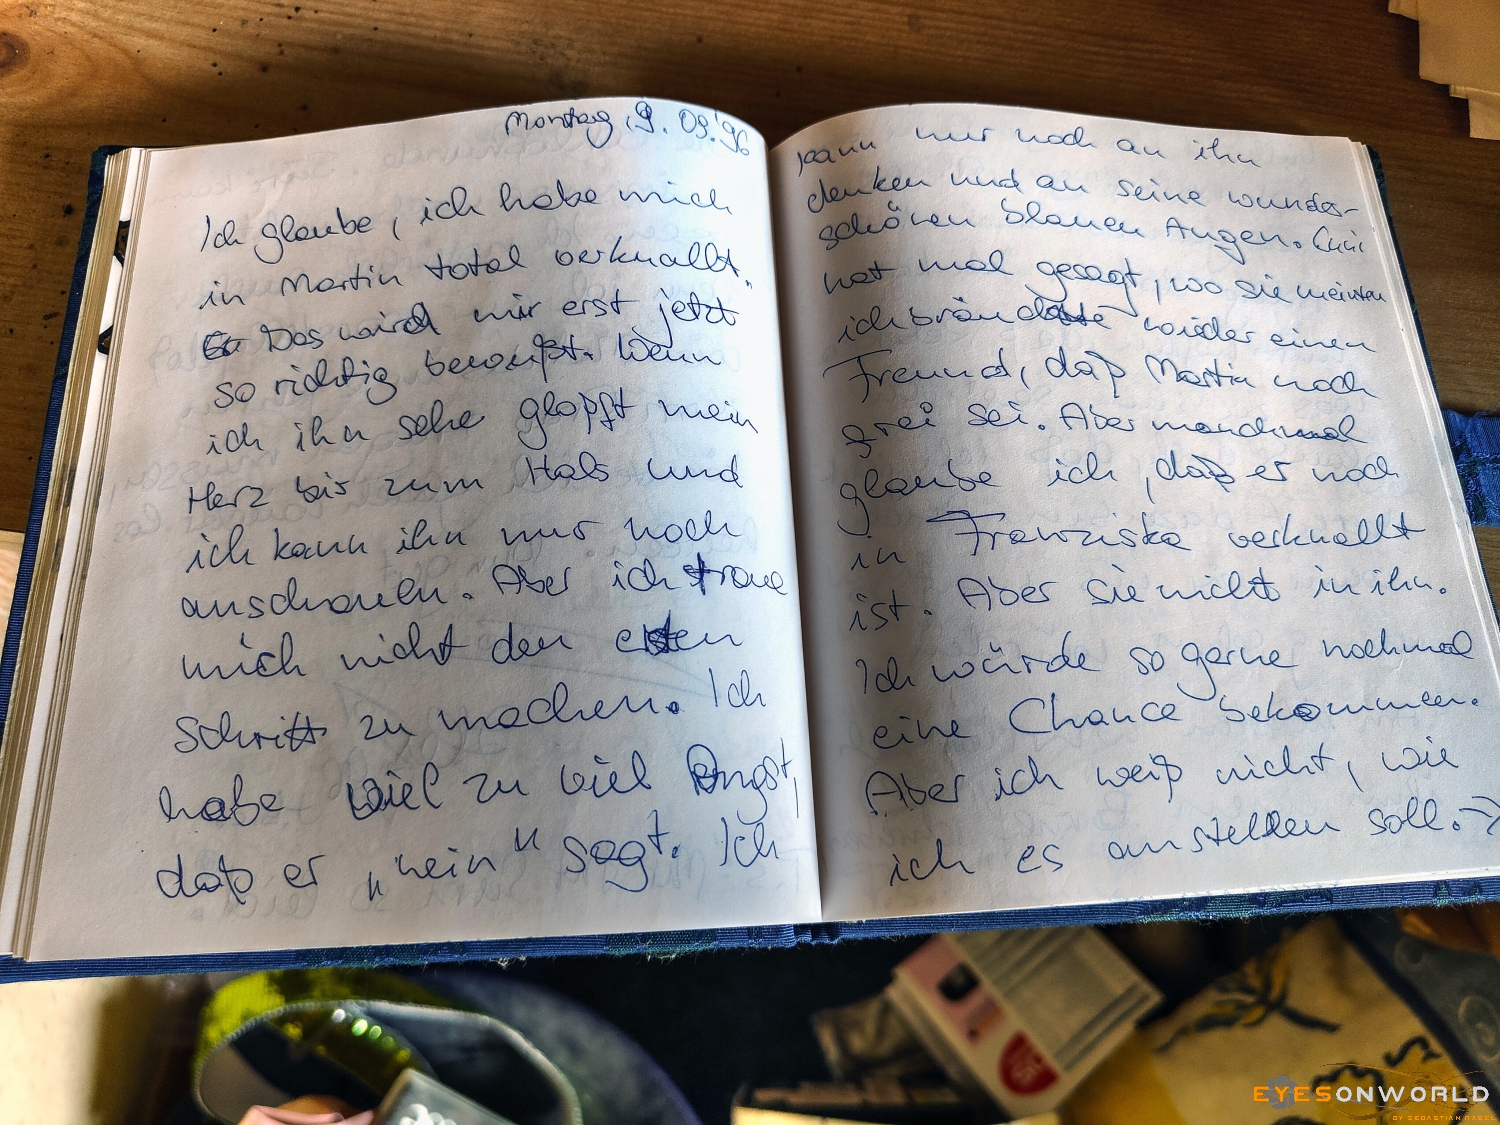 Montag, 9. 09.'96
Ich glaube, ich habe mich
in Martin total verknallt.
Das wird mir erst jetzt
so richtig bewußt. Wenn
ich ihn sehe glopft mein
Herz bis zum Hals und
ich kann ihn nur noch
anschauen. Aber ich traue
mich nicht den ersten
Schritt zu machen. Ich
habe viel zu viel Angst,
daß er „nein" sagt. Ich
kann nur noch an ihn
denken und an seine wunder-
schönen blauen Augen.
hat mal gesagt, wo sie meinten
ich bräuchte wieder einen
Freund, daß Martin noch
frei sei. Aber manchmal
glaube ich, daß er noch
in Franziska verknallt
ist. Aber sie nicht in ihn.
Ich würde so gerne nochmal
eine Chance bekommen.
Aber ich weiß nicht, wie
ich es anstellen soll. →
EYESONWORLD